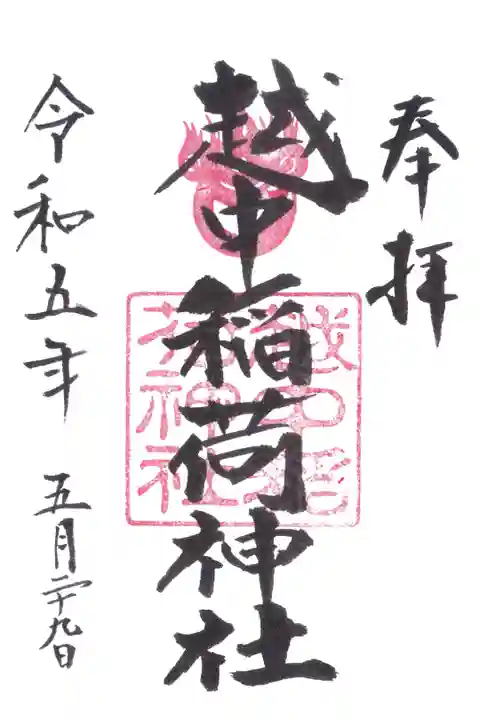 奉拝
越中稲荷神社
越中稲
荷神社
令和五年 五月二十九日